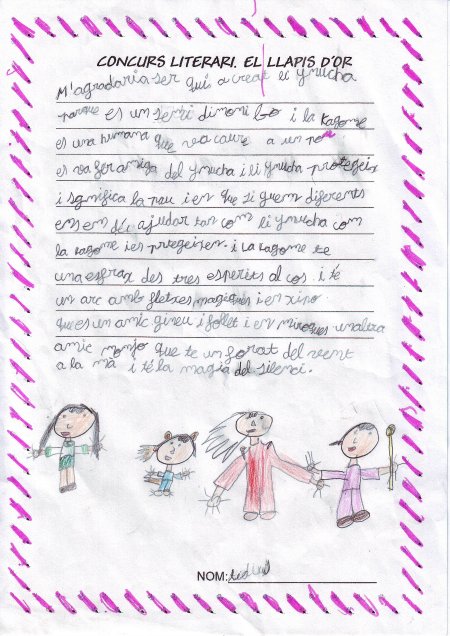 CONCURS LITERARI. EL LLAPIS D'OR
M'agradaria ser qui a creat el ynucha
parque es un semi dimoni bo i la Kagome
es una humana que va caure a un pou
es va fer amiga del ynucha i li ynucha protegeix
i significa la pau i en que si guem diferents
ens em d'ajudar tan com li ynucha com
la kagome i es protegeixen i la kagome te
una esfera des tres esperits al cos i té
un arc amb fletxes magiques i en xino
que es un amic gineu i follet i en miroques un altra
amic monjo que te un forat del vent
a la mà i té la magia del silenci.
NOM: